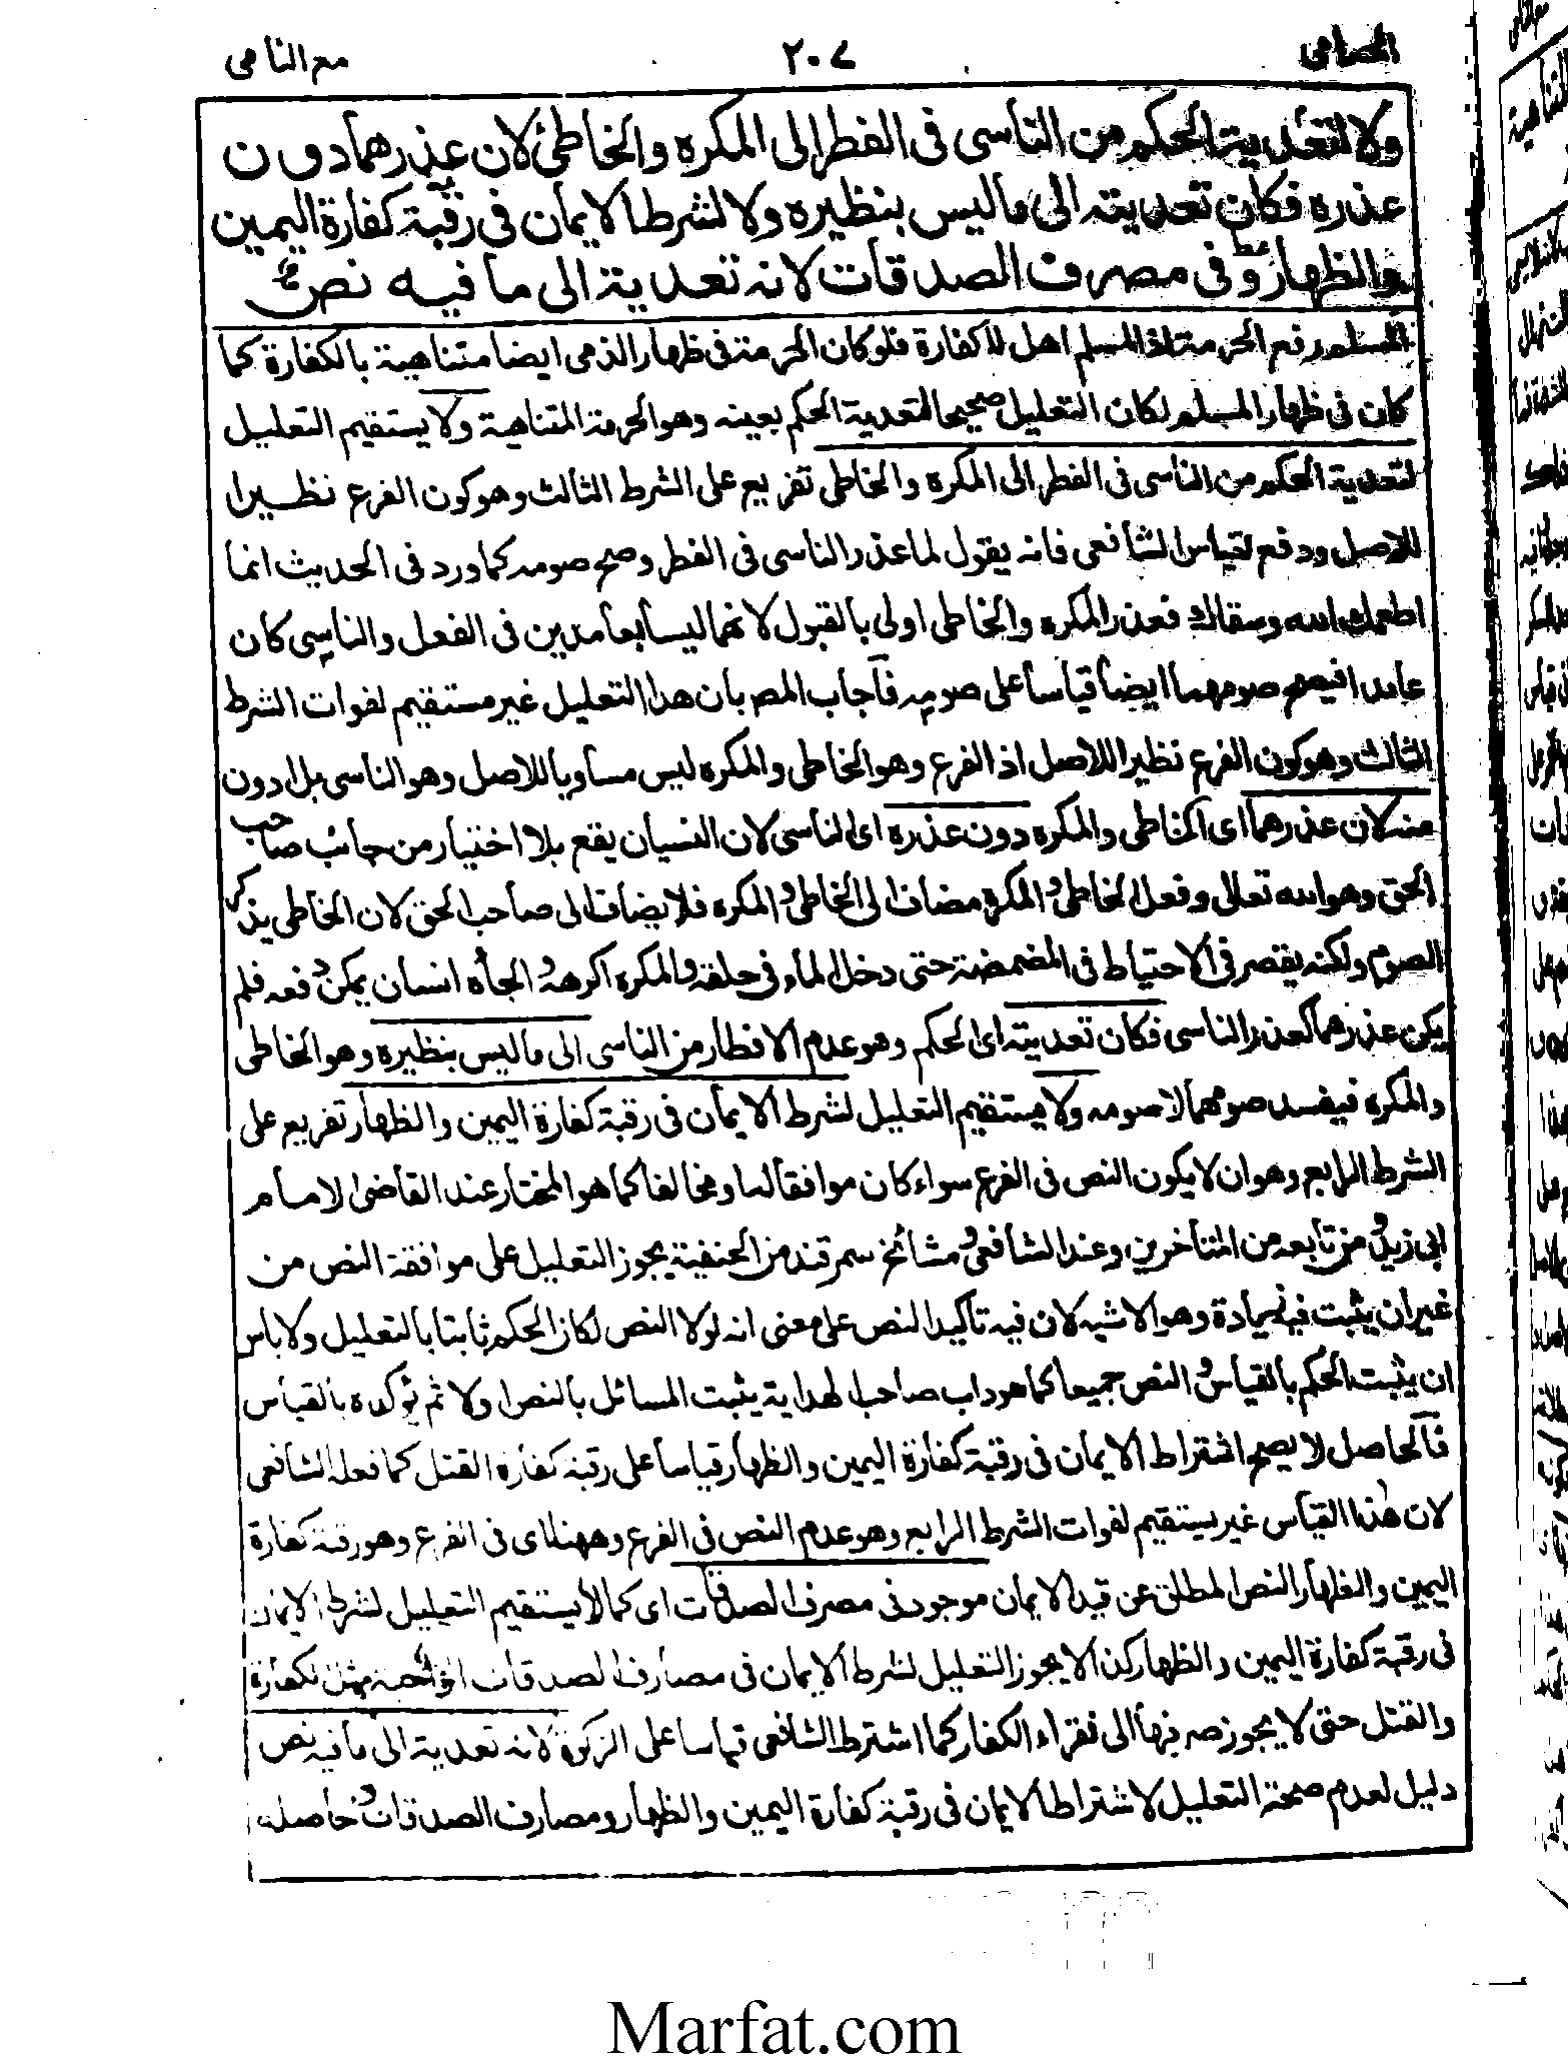 الحسامى ٢٠٧ مع النامى
ولا لتعدية الحكم من الناسى فى الفطر الى المكره والخاطئ لان عذرهما دون
عذره فكان تعديته الى ما ليس بنظيره ولا لشرط الايمان فى رقبة كفارة اليمين
والظهار وفى مصرف الصدقات لانه تعدية الى ما فيه نص
المسلم رفع الحرمة اذ المسلم اهل للكفارة فلو كان الحرمة فى ظهار الذمى ايضا متناهية بالكفارة كما
كان فى ظهار المسلم لكان التعليل صحيحا لتعدية الحكم بعينه وهو الحرمة المتناهية ولا يستقيم التعليل
لتعدية الحكم من الناسى فى الفطر الى المكره والخاطى تفريع على الشرط الثالث وهو كون الفرع نظيرا
للاصل ودفع لقياس الشافعى فانه يقول لما عذر الناسى فى الفطر وصح صومه كما ورد فى الحديث انما
اطعمك الله وسقاك فعذر المكره والخاطى اولى بالقبول لانهما ليسا بعامدين فى الفعل والناسى كان
عامدا فيصح صومهما ايضا قياسا على صومه فاجاب المص بان هذا التعليل غير مستقيم لفوات الشرط
الثالث وهو كون الفرع نظيرا للاصل اذ الفرع وهو الخاطى والمكره ليس مساويا للاصل وهو الناسى بل ادون
منه لان عذرهما اى الخاطى والمكره دون عذره اى الناسى لان النسيان يقع بلا اختيار من جانب صاحب
الحق وهو الله تعالى وفعل الخاطى والمكره مضاف الى الخاطى والمكره فلا يضاف الى صاحب الحق لان الخاطى يذكر
الصوم ولكنه يقصر فى الاحتياط فى المضمضة حتى دخل الماء فى حلقه والمكره اكرهه والجأه انسان يمكن دفعه فلم
يكن عذرهما كعذر الناسى فكان تعديته اى الحكم وهو عدم الافطار من الناسى الى ما ليس بنظيره وهو الخاطى
والمكره فيفسد صومهما لا صومه ولا يستقيم التعليل لشرط الايمان فى رقبة كفارة اليمين والظهار تفريع على
الشرط الرابع وهو ان لا يكون النص فى الفرع سواء كان موافقا له او مخالفا كما هو المختار عند القاضى الامام
ابى زيد ومن تابعه من المتأخرين وعند الشافعى ومشائخ سمرقند من الحنفية يجوز التعليل على موافقة النص من
غير ان يثبت فيه زيادة وهو الاشبه لان فيه تاكيد النص على معنى انه لولا النص لكان الحكم ثابتا بالتعليل ولا باس
ان يثبت الحكم بالقياس والنص جميعا كما هو داب صاحب الهداية يثبت المسائل بالنص اولا ثم يؤكده بالقياس
فالحاصل لا يصح اشتراط الايمان فى رقبة كفارة اليمين والظهار قياسا على رقبة كفارة القتل كما فعله الشافعى
لان هذا القياس غير مستقيم لفوات الشرط الرابع وهو عدم النص فى الفرع وههنا اى فى الفرع وهو رقبة كفارة
اليمين والظهار النص المطلق عن قيد الايمان موجود فى مصرف الصدقات اى كما لا يستقيم التعليل لشرط الايمان
فى رقبة كفارة اليمين والظهار كذا لا يجوز التعليل لشرط الايمان فى مصارف الصدقات الواجبة مثل كفارة
والقتل حتى لا يجوز صرفها الى فقراء الكفار كما اشترط الشافعى قياسا على الزكوة لانه تعدية الى ما فيه نص
دليل لعدم صحة التعليل لاشتراط الايمان فى رقبة كفارة اليمين والظهار ومصارف الصدقات وحاصله
Marfat.com